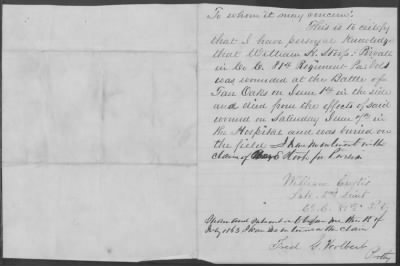 To whom it may concern:
This is to certify
that I have personal knowledge
that William H. Stoop: Private
in Co C. 81st Regiment Pa Vols
was wounded at the Battle of
Fair Oaks on June 1st in the side
and died from the effects of said
wound on Saturday June 7th in
the Hospital and was buried on
the field I have no interest in the
claim of Stoop for Pension
William
Late 2nd Lieut
Co C.
Sworn and subscribed before me this 15 of
July 1863 I have no interest in the claim
Fred G. Wolbert